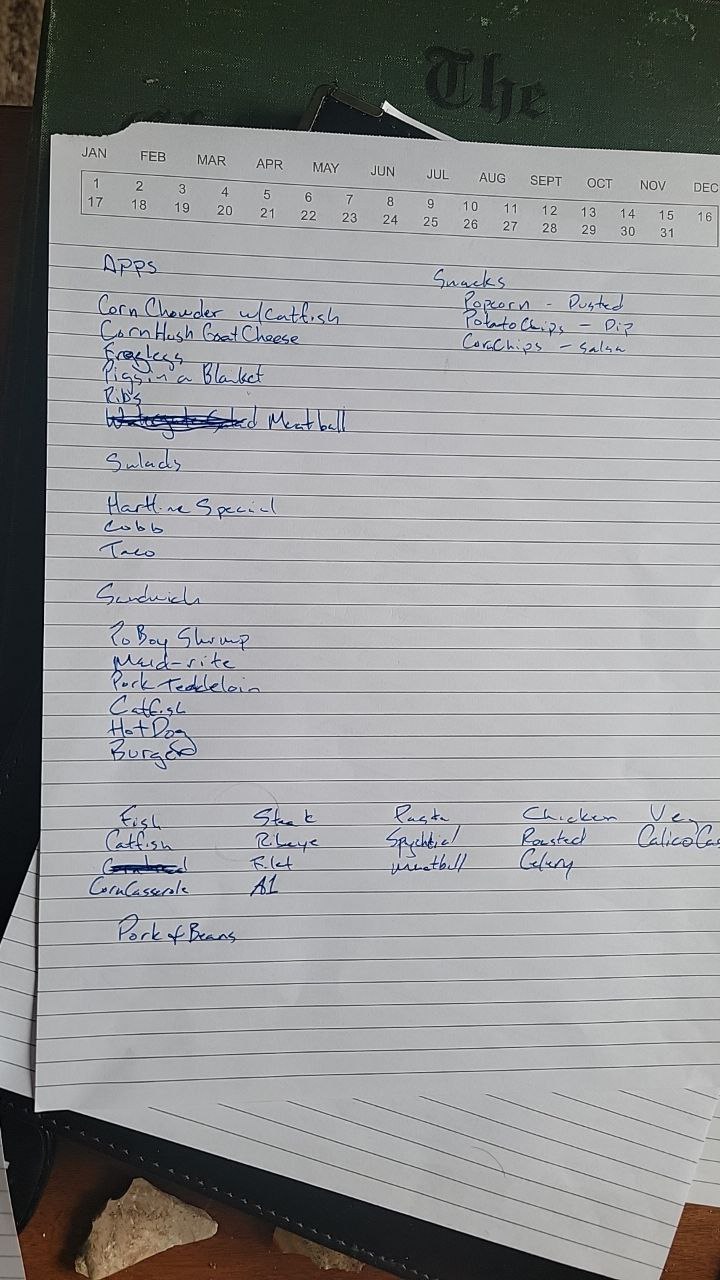 The
JAN FEB MAR APR MAY JUN JUL AUG SEPT OCT NOV DEC
1 2 3 4 5 6 7 8 9 10 11 12 13 14 15 16
17 18 19 20 21 22 23 24 25 26 27 28 29 30 31
Apps
Corn Chowder w/Catfish
Corn Hush Goat Cheese
Froglegs
Pigs in a Blanket
Ribs
Meatball
Snacks
Popcorn - Dusted
Potato Chips - Dip
Corn Chips - Salsa
Salads
Hartline Special
Cobb
Taco
Sandwich
Po Boy Shrimp
Maid-rite
Pork
Catfish
Hot Dog
Burger
Fish Steak Pasta Chicken
Catfish Ribeye Roasted Calico
Filet meatball
Corn Casserole A1
Pork & Beans